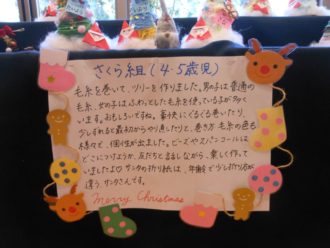 さくら組(4・5歳児)
毛糸を巻いて、ツリーを作りました。男の子は普通の
毛糸、女の子はふわっとした毛糸を使っている子が多く
います。おもしろいですね。豪快にぐるぐる巻いたり、
少しずれると最初からやり直したりと、巻き方、毛糸の色も
様々で、個性が出ました。ビーズやスパンコールは
どこにつけようか、友だちと話しながら、楽しく作って
いましたよ♡ サンタの折り紙は、年齢で少し折り方が
違う、サンタさんです。
Merry Christmas